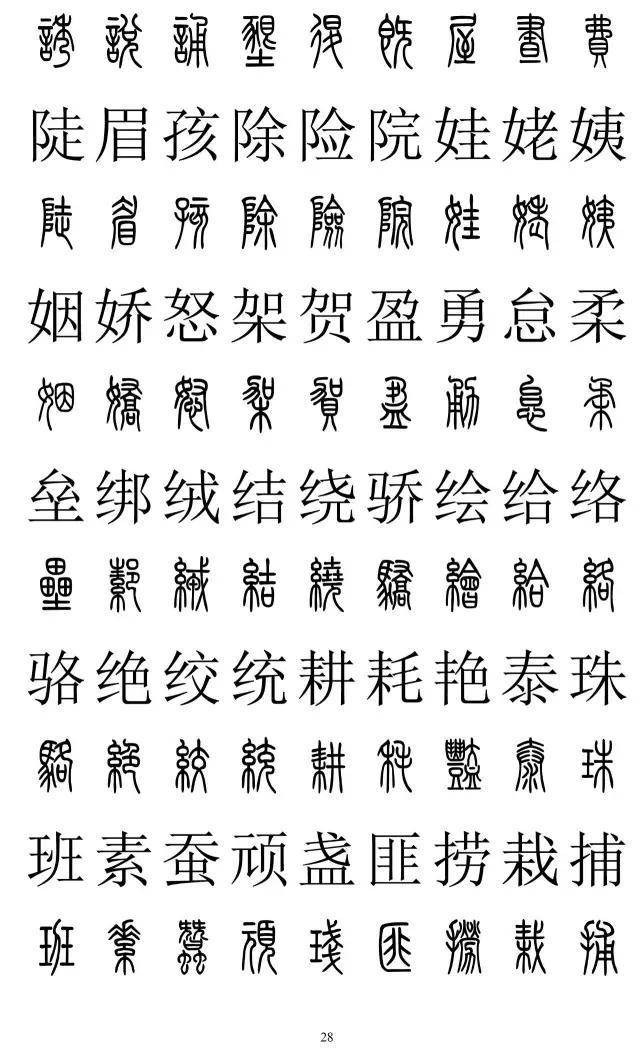 誘說誦墾退既屋晝費
陡眉孩除险院娃姥姨
陡眉孩除險院娃姥姨
姻娇怒架贺盈勇怠柔
姻嬌怒架賀盈勇怠柔
垒绑绒结绕骄绘给络
壘綁絨結繞驕繪給絡
骆绝绞统耕耗艳泰珠
駱絕絞統耕耗豔泰珠
班素蚕顽盏匪捞栽捕
班素蠶頑琖匪撈栽捕
28